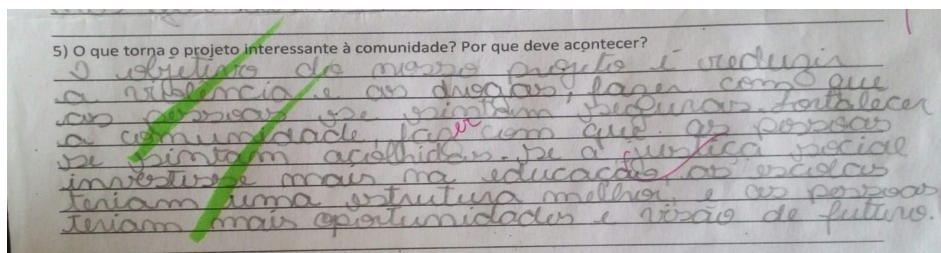 5) O que torna o projeto interessante à comunidade? Por que deve acontecer?
O objetivo do nosso projeto é reduzir
a violência e as drogas, fazer com que
as pessoas se sintam seguras. Fortalecer
a comunidade, fazer com que as pessoas
se sintam acolhidas. Se a justiça social
investisse mais na educação, as escolas
teriam uma estrutura melhor, e as pessoas
teriam mais oportunidades e visão de futuro.